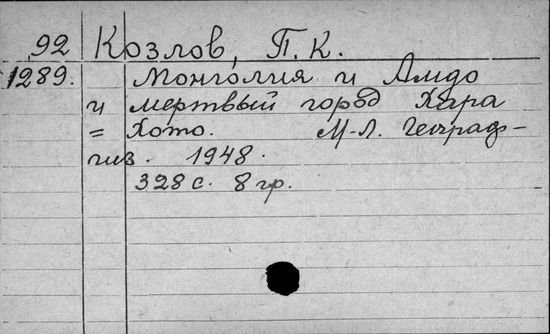 92 Козлов, П. К.
1289. Монголия и Амдо
и мертвый город Хара
= Хото. М-Л. Географ-
гиз. 1948.
328 с. 8 гр.